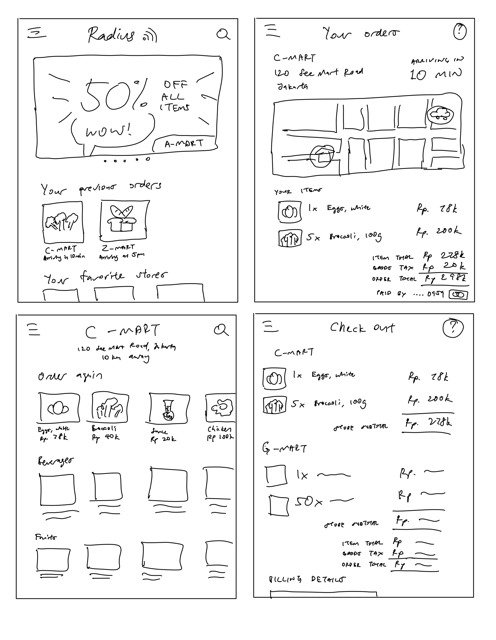 Radius
50%
OFF
ALL
ITEMS
WOW!
A-MART
Your previous orders
C-MART
Arriving in 10 min
Z-MART
Arriving at 5pm
Your favorite stores
Your orders
?
C-MART
120 See Mart Road
Jakarta
ARRIVING IN
10 MIN
YOUR ITEMS
1x Eggs, white Rp. 78k
5x Broccoli, 100g Rp. 200k
ITEM TOTAL Rp 278k
GOODS TAX Rp 20k
ORDER TOTAL Rp 298k
PAID BY .... 0959
C-MART
120 See Mart Road, Jakarta
10 km away
Order again
Eggs, white
Rp. 78k
Broccoli
Rp 40k
Juice
Rp 20k
Chicken
Rp 100k
Beverages
Fruits
Check out
?
C-MART
1x Eggs, white Rp. 78k
5x Broccoli, 100g Rp. 200k
STORE SUBTOTAL Rp. 278k
G-MART
1x Rp.
50x Rp
STORE SUBTOTAL Rp.
ITEM TOTAL Rp
GOODS TAX Rp
ORDER TOTAL Rp
BILLING DETAILS